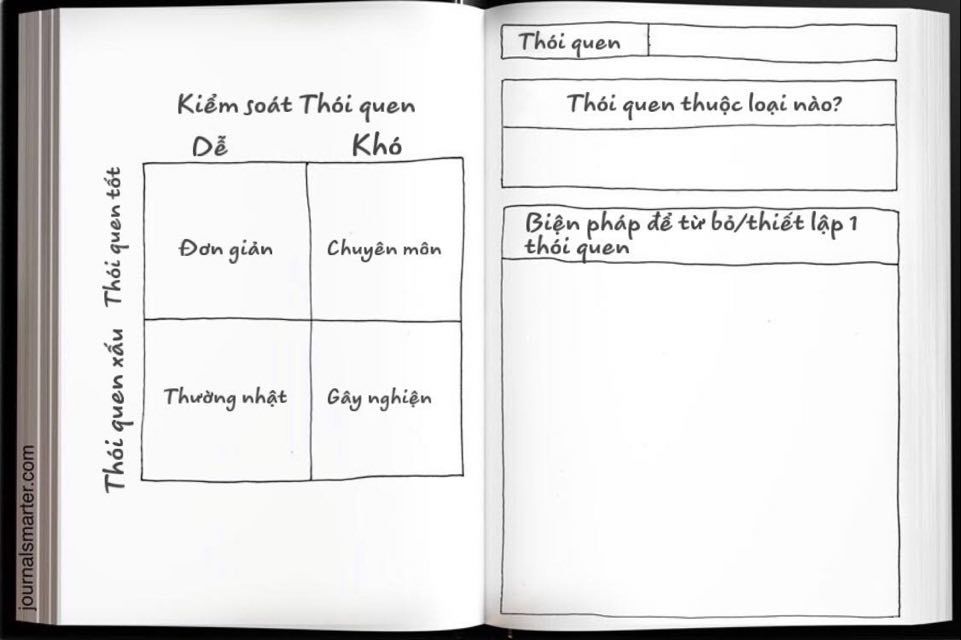 Kiểm soát Thói quen
Dễ
Khó
Thói quen tốt
Đơn giản
Chuyên môn
Thói quen xấu
Thường nhật
Gây nghiện
journalsmarter.com
Thói quen
Thói quen thuộc loại nào?
Biện pháp để từ bỏ/thiết lập 1
thói quen